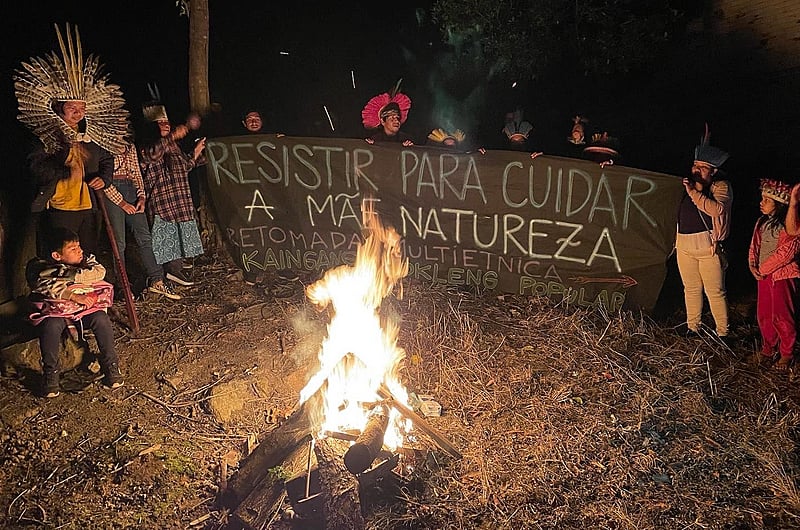 RESISTIR PARA CUIDAR
A MÃE NATUREZA
RETOMADA MULTIETNICA
KAINGANG XOKLENG POPULAR